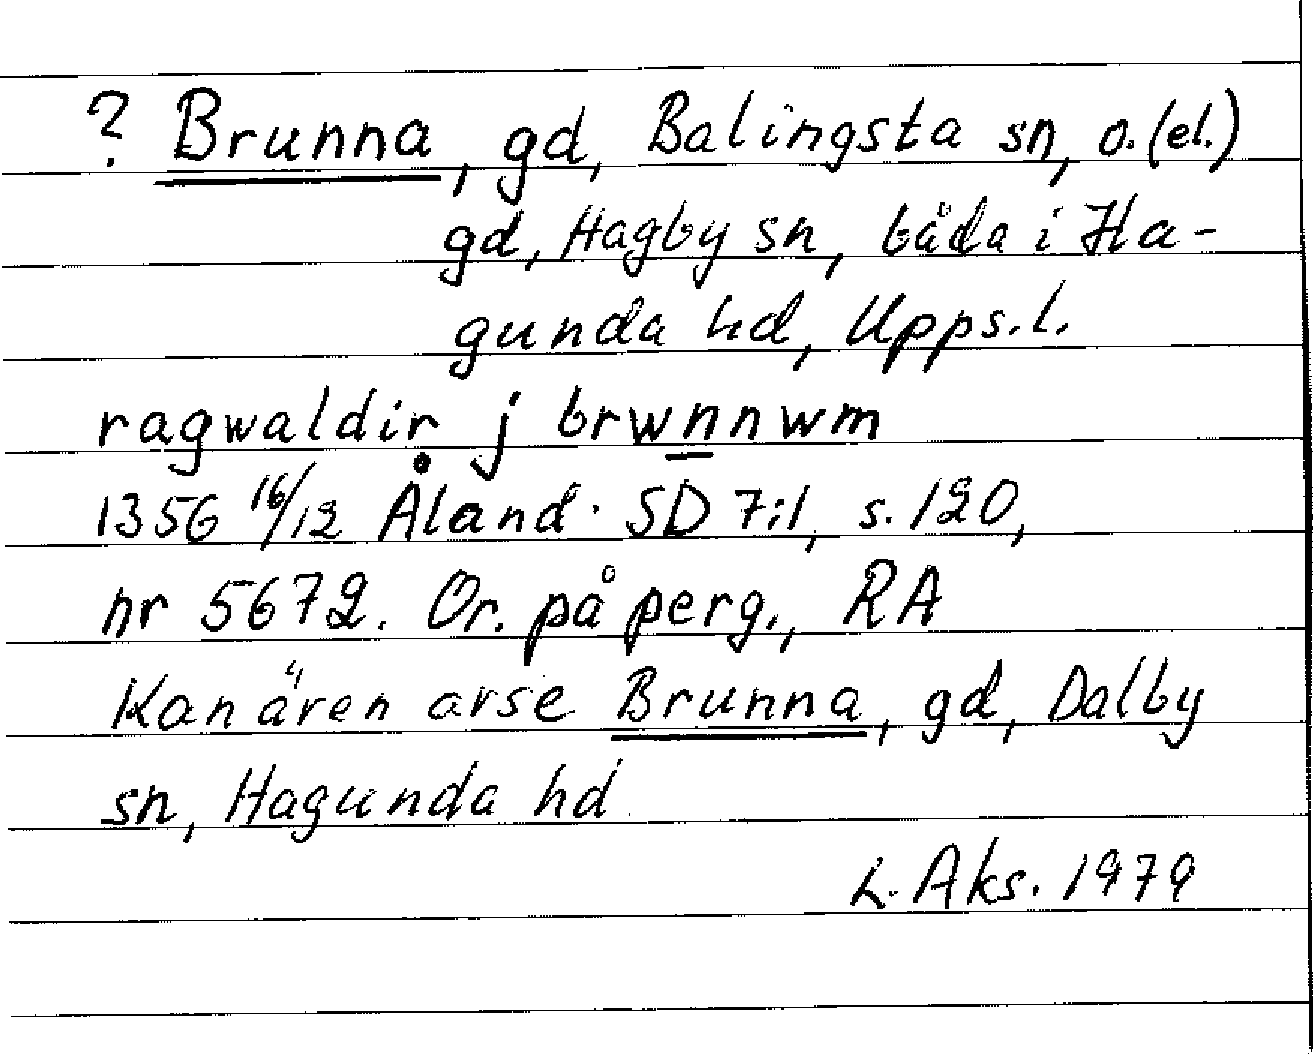 ? Brunna, gd, Balingsta sn, o. (el.)
gd, Hagby sn, båda i Ha-
gunda hd, Upps. l.
ragwaldir j brwnnwm
1356 16/12 Åland. SD 7:1, s. 120,
nr 5672. Or. på perg., RA
Kan även avse Brunna, gd, Dalby
sn, Hagunda hd
L. Aks. 1979